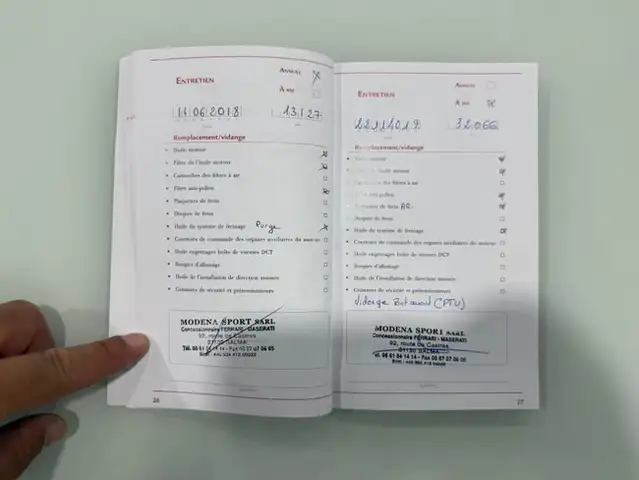 ENTRETIEN
ANNUEL
À
14 06 2018 13127
Remplacement/vidange
Huile moteur
Filtre de l'huile moteur
Cartouches des filtres à air
Filtre anti-pollen
Plaquettes de freins
Disques de freins
Huile du système de freinage Purge
Courroies de commande des organes auxiliaires du moteur
Huile engrenages boîte de vitesses DCT
Bougies d'allumage
Huile de l'installation de direction assistée
Ceintures de sécurité et prétensionneurs
MODENA SPORT SARL
Concessionnaire FERRARI - MASERATI
92, route de Castres
31130 BALMA
26
ENTRETIEN
ANNUEL
À
22112019 32066
Remplacement/vidange
Huile moteur
moteur
Cartouches des filtres à air
anti-pollen
de freins AR
Disques de freins
Huile du système de freinage
Courroies de commande des organes auxiliaires du moteur
Huile engrenages boîte de vitesses DCT
Bougies d'allumage
Huile de l'installation de direction assistée
Ceintures de sécurité et prétensionneurs
Vidange (PTU)
MODENA SPORT SARL
Concessionnaire FERRARI - MASERATI
92, route de Castres
31130 BALMA
27